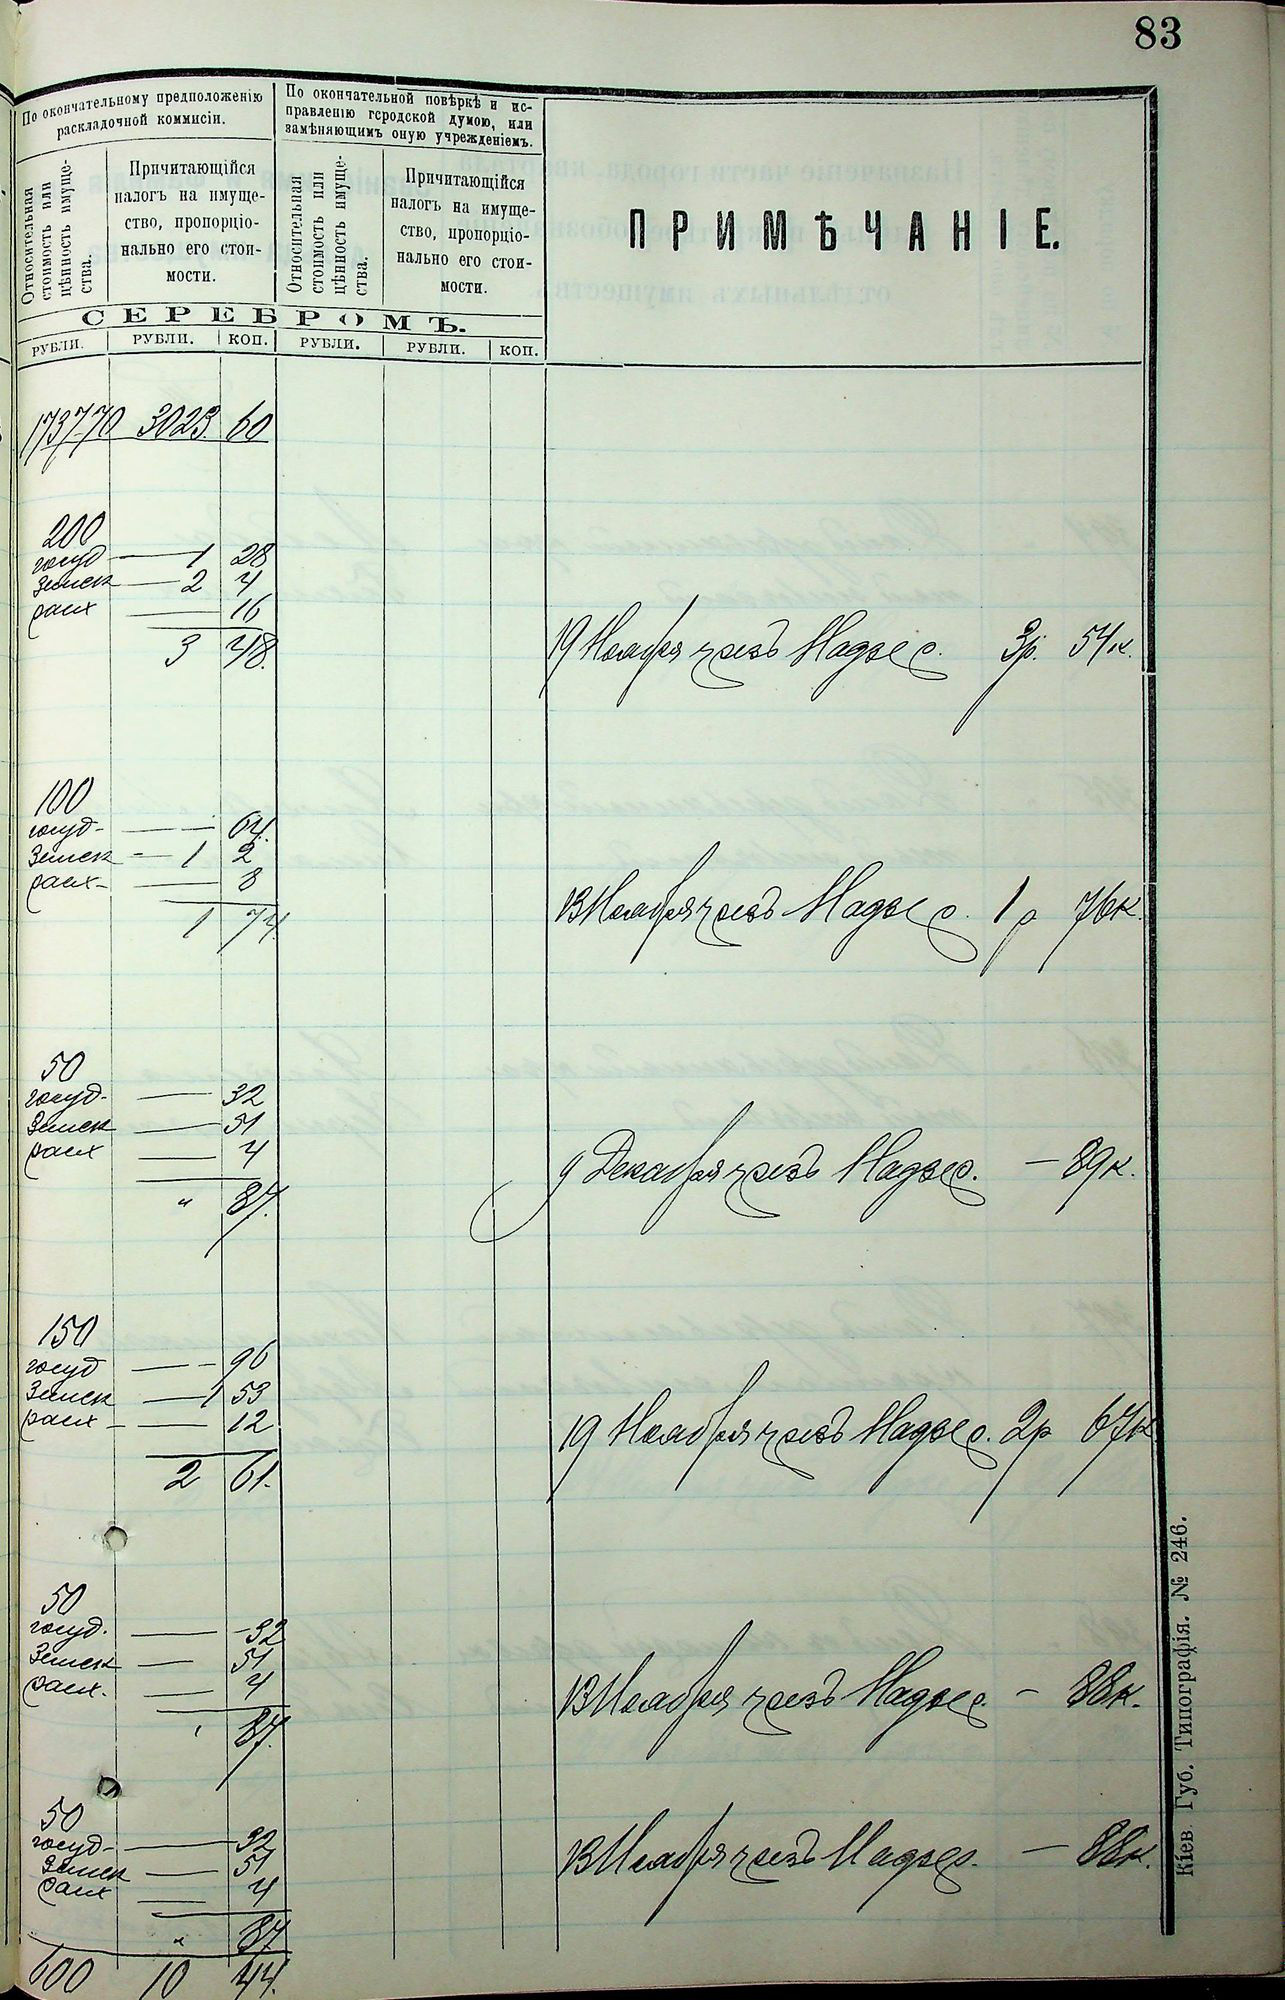 83
По окончательному предположенію
раскладочной коммисіи.
По окончательной повѣркѣ и ис-
правленію городской думою, или
замѣняющимъ оную учрежденіемъ.
Относительная
стоимость или
цѣнность имуще-
ства.
Причитающійся
налогъ на имуще-
ство, пропорціо-
нально его стои-
мости.
Относительная
стоимость или
цѣнность имуще-
ства.
Причитающійся
налогъ на имуще-
ство, пропорціо-
нально его стои-
мости.
ПРИМѢЧАНІЕ.
СЕРЕБРОМЪ.
РУБЛИ. РУБЛИ. КОП. РУБЛИ. РУБЛИ. КОП.
173770 3023 60
200
госуд — 1 28
Земск — 2 4
расх — 16
3 48
19 Ноября чрезъ 3р. 54к.
100
госуд — — 64
Земск — 1 2
расх — 8
1 74
13 Ноября чрезъ 1р 76к.
50
госуд — 32
Земск — 51
расх — 4
" 87
9 Декабря чрезъ — 89к.
150
госуд — — 96
Земск — 1 53
расх — 12
2 61.
19 Ноября чрезъ 2р 67к
50
госуд. — 32
Земск — 51
расх. — 4
87
13 Ноября чрезъ — 88к.
50
госуд — 32
Земск — 51
расх — 4
" 87
13 Ноября чрезъ — 88к.
600 10 44.
Кіев. Губ. Типографія. № 246.